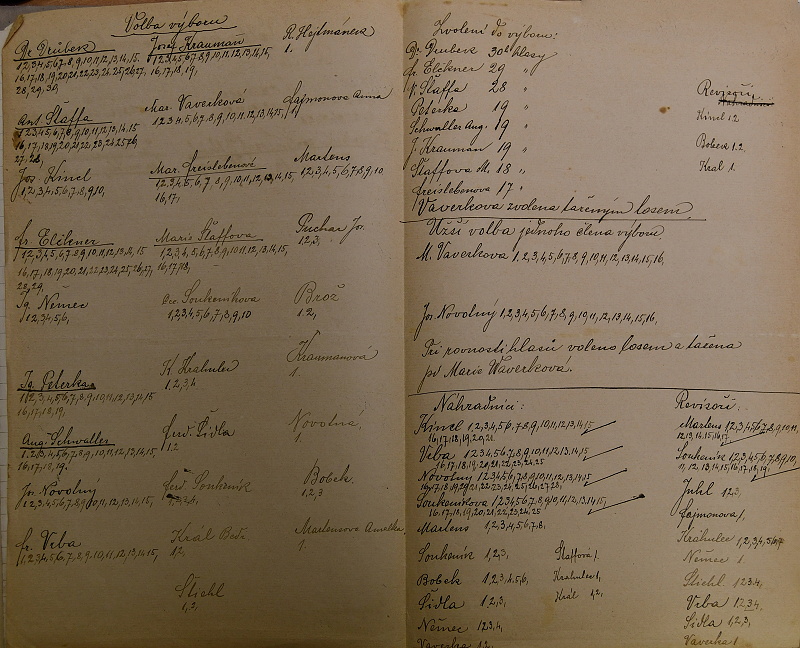 Volba výboru
Dr Drubek
1,2,3,4,5,6,7,8,9,10,11,12,13,14,15,
16,17,18,19,20,21,22,23,24,25,26,27,
28,29,30
Josef Krauman
1,2,3,4,5,6,7,8,9,10,11,12,13,14,15,
16,17,18,19,
R. Hejtmánek
1.
Ant. Štaffa
1,2,3,4,5,6,7,8,9,10,11,12,13,14,15
16,17,18,19,20,21,22,23,24,25,26,
27,28,
Mar. Vaverková
1 2 3 4,5,6,7,8,9,10,11,12,13,14,15,
Fajmonova Anna
Jos. Kincl
1,2,3,4,5,6,7,8,9,10,
Mar. Freislebenová
1,2,3,4,5,6,7,8,9,10,11,12,13,14,15
16,17,
Martens
1,2,3,4,5,6,7,8,9,10
Fr. Elčkner
1,2,3,4,5,6,7,8,9,10,11,12,13,14,15
16,17,18,19,20,21,22,23,24,25,26,27,
28,29,
Marie Štaffova
1,2,3,4,5,6,7,8,9,10,11,12,13,14,15,
16,17,18,
Puchar Jos.
1,2,3,
Ig. Němec
1,2,3,4,5,6,
Soukeníkova
1,2,3,4,5,6,7,8,9,10
Brož
1.2,
Ig. Peterka
1,2,3,4,5,6,7,8,9,10,11,12,13,14,15
16,17,18,19,
K Krahulec
1,2,3,4
Kraumanová
1.
Aug. Schwaller
1,2,3,4,5,6,7,8,9,10,11,12,13,14,15
16,17,18,19.
Ferd. Šidla
1.2
Novotná,
1
Jos. Novotný
1,2,3,4,5,6,7,8,9,10,11,12,13,14,15,
Ferd. Soukeník
1,2,3,4,
Bobek
1,2,3
Fr. Vrba
1,2,3,4,5,6,7,8,9,10,11,12,13,14,15,
Král Betr.
1,2,
Martensova Amalka
1
Štichl
1,2,
Zvoleni do výboru:
Dr. Drubek 30 hlasy
Fr. Elčkner 29 "
Štaffa 28 "
Peterka 19 "
Schwaller Aug. 19 "
J. Krauman 19 "
Štaffova M. 18 "
Freislebenova 17 "
Revisoři
Kincl 1 2
Bobek 1 2.
Král 1.
Vaverkova zvolena taženým losem.
Užší volba jednoho člena výboru
M. Vaverkova 1,2,3,4,5,6,7,8,9,10,11,12,13,14,15,16,
Jos. Novotný 1,2,3,4,5,6,7,8,9,10,11,12,13,14,15,16,
Při rovnosti hlasů voleno losem a tažena
Marie Waverková.
Náhradníci:
Kincl 1,2,3,4,5,6,7,8,9,10,11,12,13,14,15
16,17,18,19,20,21
Vrba 1 2 3 4,5,6,7,8,9,10,11,12,13,14,15
16,17,18,19,20,21,22,23,24,25
Novotný 1,2,3,4,5,6,7,8,9,10,11,12,13,14,15
16,17,18,19,20,21,22,23,24,25,26,27,28,
Soukeníkova 1 2 3 4,5,6,7,8,9,10,11,12,13,14,15,
16,17,18,19,20,21,22,23,24,25
Martens 1,2,3,4,5,6,7,8,
Soukeník 1,2,3,
Bobek 1,2,3,4,5,6,
Šidla 1,2,3,
Němec 1 2 3,4,
Vaverka 1,2,
Štaffova 1.
Krahulec 1,
Král 1,2,
Revisoři.
Martens 1 2,3,4,5,6,7,8,9,10,11,
12,13,14,15,16,17
Soukeník 1,2,3,4,5,6,7,8,9,10,
11,12,13,14,15,16,17,18,19,
1 2 3,
Fajmonova 1,
Krahulec 1,2,3,4,5,6,7
Němec 1.
Štichl 1 2 3 4,
Vrba 1 2 3 4,
Šidla 1,2,3,
Vaverka 1.